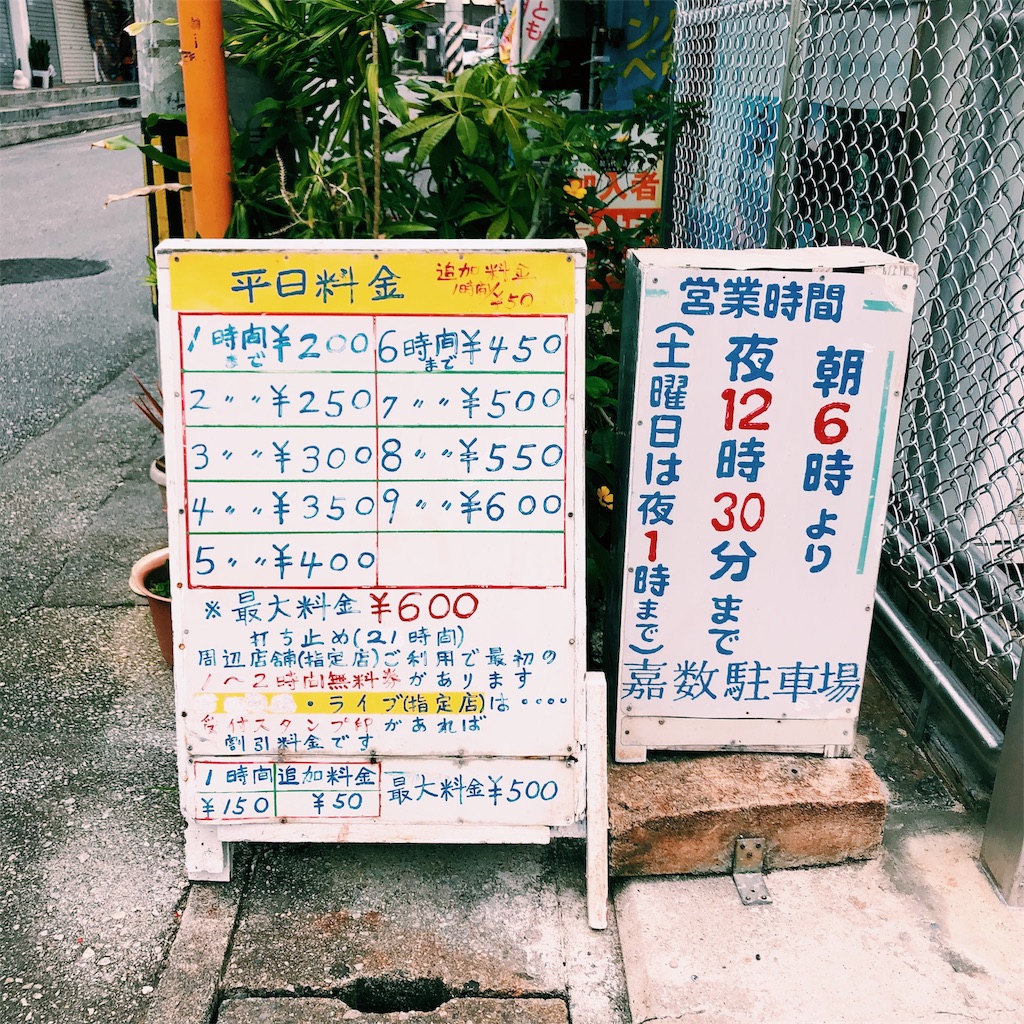 平日料金
追加料金
1時間¥50
1時間まで¥200
6時間まで¥450
2〃〃¥250
7〃〃¥500
3〃〃¥300
8〃〃¥550
4〃〃¥350
9〃〃¥600
5〃〃¥400
※最大料金¥600
打ち止め(21時間)
周辺店舗(指定店)ご利用で最初の
1〜2時間無料券があります
・ライブ(指定店)は‥‥
受付スタンプ印があれば
割引料金です
1時間 追加料金
¥150 ¥50
最大料金¥500
営業時間
朝6時より
夜12時30分まで
(土曜日は夜1時まで)
嘉数駐車場
とも
入者